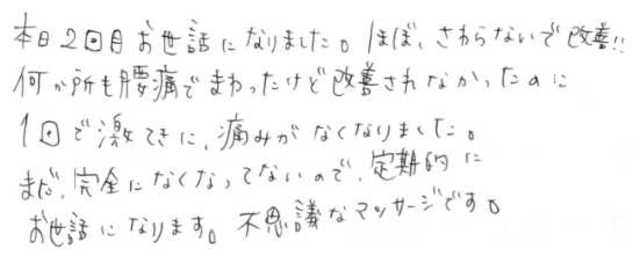 本日2回目お世話になりました。ほぼ、さわらないで改善!!
何か所も腰痛でまわったけど改善されなかったのに
1回で激てきに、痛みがなくなりました。
まだ、完全になくなってないので、定期的に
お世話になります。不思議なマッサージです。